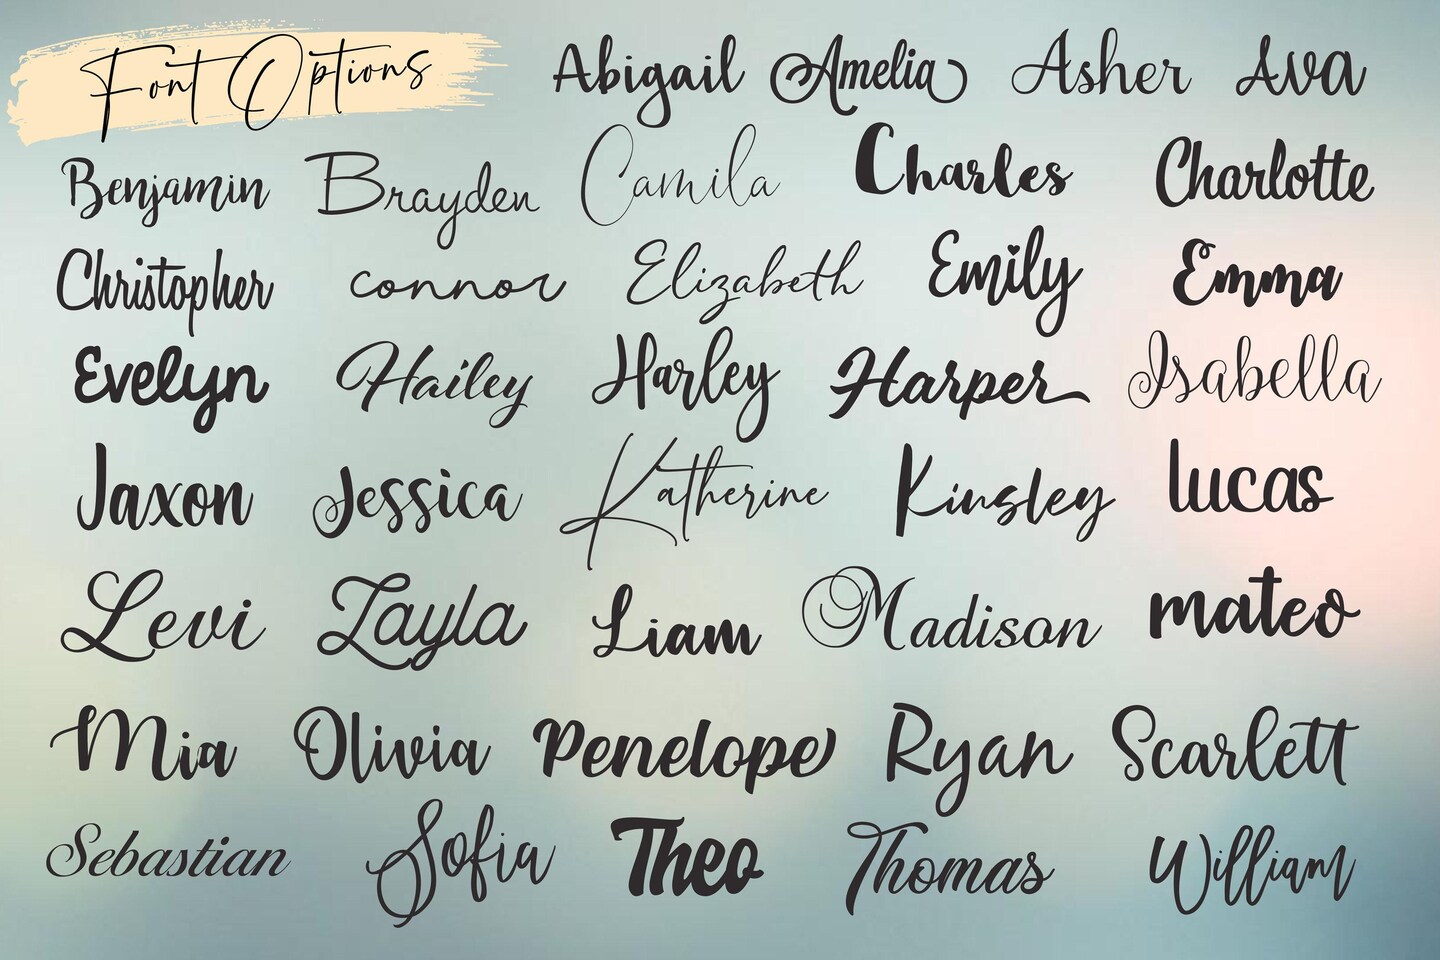 Font Options
Abigail Amelia Asher Ava
Benjamin Brayden Camila Charles Charlotte
Christopher connor Elizabeth Emily Emma
Evelyn Hailey Harley Harper Isabella
Jaxon Jessica Katherine Kinsley lucas
Levi Layla Liam Madison mateo
Mia Olivia Penelope Ryan Scarlett
Sebastian Sofia Theo Thomas William